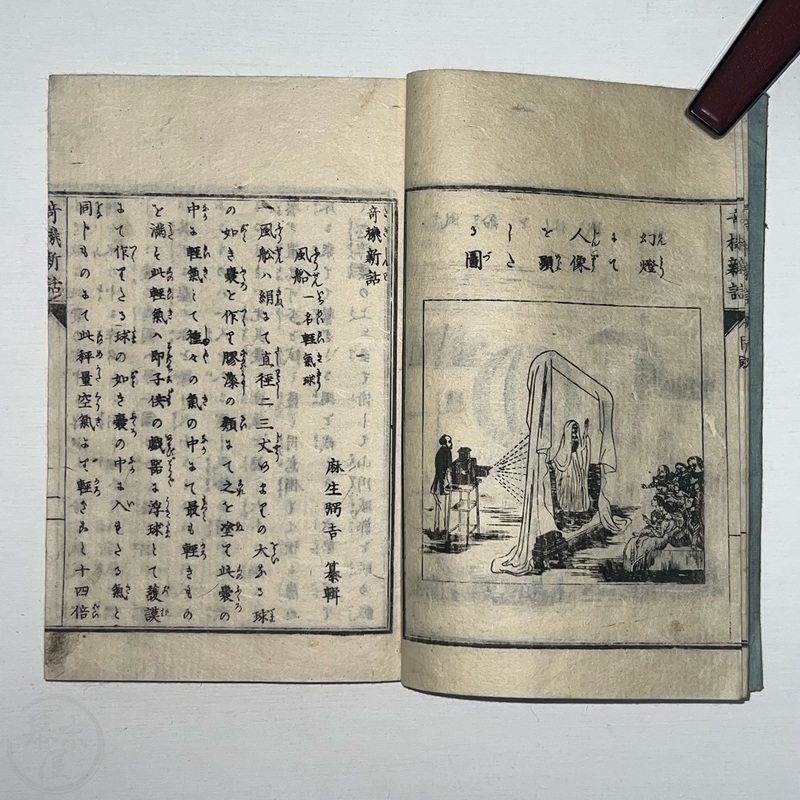 奇機新話
幻燈
にて
人像
を顕
した
る圖
奇機新話
風船 一名輕氣球
麻生弼吉 纂輯
一風船ハ絹にて直徑二三丈の大なる球
の如き嚢を作り膠漆の類にて之を塗り此嚢の
中に輕氣とて種々の氣の中にて最も輕きもの
を満つ此輕氣ハ即子供の戯器なる浮球とて護謨
にて作りたる球の如き嚢の中に入きたる氣と
同しものにて此秤量空氣より輕きこと十四倍
奇機新話